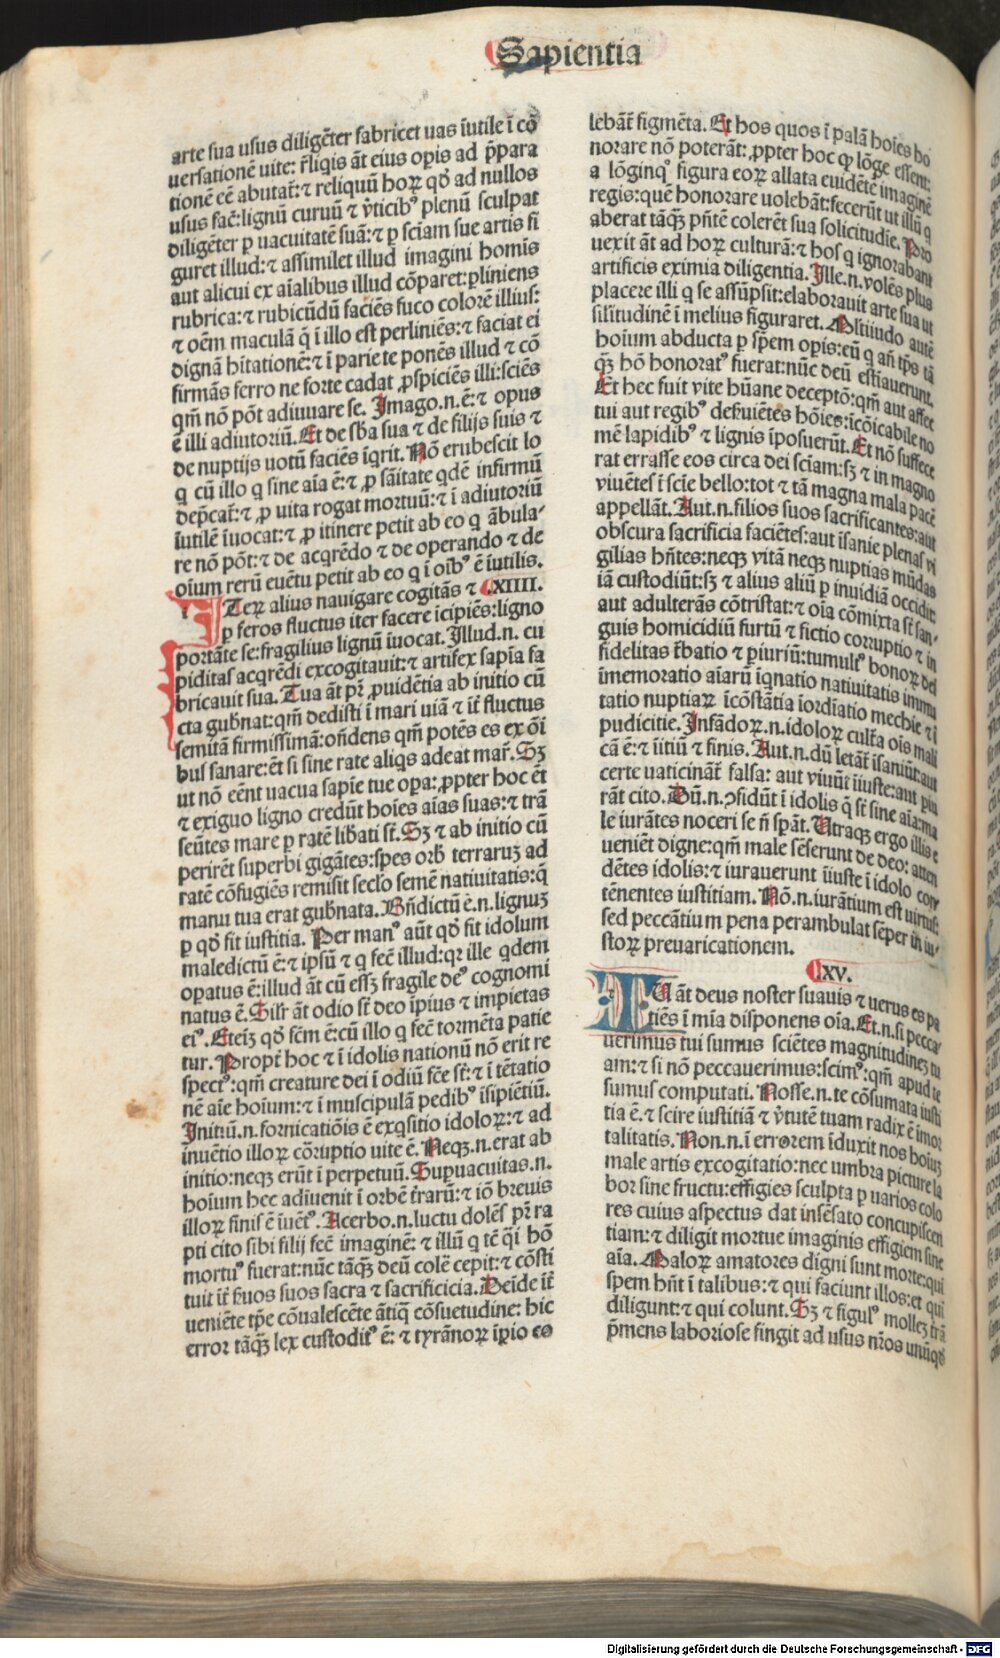 Sapientia
arte sua usus diligẽter fabricet uas ĩutile ĩ cõ
uersationẽ uite: r̃liqis ãt eius opis ad p̃para
tionẽ eẽ abutat̃:⁊ reliquũ hoꝝ qď ad nullos
usus fac̃:lignũ curuũ ⁊ ỹticibꝰ plenũ sculpat
diligẽter ꝑ uacuitatẽ suã:⁊ ꝑ sciam sue artis fi
guret illud:⁊ assimilet illud imagini homĩs
aut alicui ex aĩalibus illud cõparet:ꝑliniens
rubrica:⁊ rubicũdũ faciẽs fuco colorẽ illius:
⁊ oẽm maculã q̃ ĩ illo est perliniẽs:⁊ faciat ei
dignã hĩtationẽ:⁊ ĩ pariete ponẽs illud ⁊ cõ
firmãs ferro ne forte cadat ꝓspiciẽs illi:sciẽs
qm̃ nõ põt adiuuare se. Imago.n.ẽ:⁊ opus
ẽ illi adiutoriũ. Et de sb̃a sua ⁊ de filijs suis ⁊
de nuptijs uotũ faciẽs ĩqrit. Nõ erubescit lo
q cũ illo q sine aĩa ẽ:⁊ ꝓ sãitate qdẽ infirmũ
dep̃cat̃:⁊ ꝓ uita rogat mortuũ:⁊ ĩ adiutoriũ
ĩutilẽ ĩuocat:⁊ ꝓ itinere petit ab eo q ãbula-
re nõ põt:⁊ de acqrẽdo ⁊ de operando ⁊ de
oĩum rerũ euẽtu petit ab eo q ĩ oĩbꝰ ẽ ĩutilis.
ITeꝝ alius nauigare cogitãs ⁊ XIIII.
ꝑ feros fluctus iter facere ĩcipiẽs:ligno
portãte se:fragilius lignũ ĩuocat. Illud.n. cu
piditas acqrẽdi excogitauit:⁊ artifex sapĩa fa
bricauit sua. Tua ãt pr̃ ꝓuidẽtia ab initio cũ
cta gub̃nat:qm̃ dedisti ĩ mari uiã ⁊ ĩt̃ fluctus
semitã firmissimã:oñdens qm̃ potẽs es ex oĩ
bus sanare:ẽt si sine rate aliqs adeat mar̃. Sꝫ
ut nõ eẽnt uacua sapĩe tue opa:ꝓpter hoc ẽt
⁊ exiguo ligno credũt hoĩes aĩas suas:⁊ trã
seũtes mare ꝑ ratẽ libati st̃. Sꝫ ⁊ ab initio cũ
perirẽt superbi gigãtes:spes orb̃ terraruꝫ ad
ratẽ cõfugiẽs remisit seclo semẽ natiuitatis:q̃
manu tua erat gub̃nata. Bñdictũ ẽ.n.lignuꝫ
ꝑ qď fit iustitia. Per manꝰ aũt qď fit idolum
maledictũ ẽ:⁊ ip̃sũ ⁊ q fec̃ illud:qꝛ ille qdem
opatus ẽ:illud ãt cũ essꝫ fragile deꝰ cognomĩ
natus ẽ. Silr̃ ãt odio st̃ deo ĩpius ⁊ impietas
eiꝰ. Eteĩꝫ qď fc̃m ẽ:cũ illo q fec̃ tormẽta patie
tur. Propt̃ hoc ⁊ ĩ idolis nationũ nõ erit re
spectꝰ:qm̃ creature dei ĩ odiũ fc̃e st̃:⁊ ĩ tẽtatio
nẽ aĩe hoĩum:⁊ ĩ muscipulã pedibꝰ ĩsipiẽtiũ.
Initiũ.n.fornicatiõis ẽ exqsitio idoloꝝ:⁊ ad
ĩnuẽtio illoꝝ cõruptio uite ẽ. Neqꝫ.n.erat ab
initio:neqꝫ erũt ĩ perpetuũ. Supuacuitas.n.
hoĩum hec adĩuenit ĩ orbẽ t̃rarũ:⁊ iõ breuis
illoꝝ finis ẽ ĩuẽtꝰ. Acerbo.n.luctu dolẽs pr̃ ra
pti cito sibi filij fec̃ imaginẽ: ⁊ illũ q tẽ q̃si hõ
mortuꝰ fuerat:nũc tãqꝫ deũ colẽ cepit:⁊ cõsti
tuit ĩt̃ s̃uos suos sacra ⁊ sacrificicia. Deĩde ĩt̃
ueniẽte tp̃e cõualescẽte ãtiq̃ cõsuetudine: hic
error tãqꝫ lex custoditꝰ ẽ: ⁊ tyrãnoꝝ ĩꝑio co
lebãt̃ figmẽta. Et hos quos ĩ palã hoĩes ho
norare nõ poterãt:ꝓpter hoc ꝙ lõge essent:
a lõginqꝰ figura eoꝝ allata euidẽtẽ imaginẽ
regis:quẽ honorare uolebãt:fecerũt ut illũ q
aberat tãqꝫ pñtẽ colerẽt sua solicitudĩe. Pro
uexit ãt ad hoꝝ culturã:⁊ hos q ignorabant
artificis eximia diligentia. Ille.n.volẽs plus
placere illi q se assũpsit:elaborauit arte sua ut
sil̃itudinẽ ĩ melius figuraret. Mltiudo autẽ
hoĩum abducta ꝑ sp̃em opis:eũ q añ tp̃s tã
qꝫ hõ honoratꝰ fuerat:nũc deũ estĩauerunt.
Et hec fuit vite hũane deceptõ:qm̃ aut affec
tui aut regibꝰ des̃uiẽtes hõies:ĩcõicabile no
mẽ lapidibꝰ ⁊ lignis ĩposuerũt. Et nõ suffece
rat errasse eos circa dei sciam:sꝫ ⁊ in magno
viuẽtes ĩ scĩe bello:tot ⁊ tã magna mala pacẽ
appellãt. Aut.n.filios suos sacrificantes:aut
obscura sacrificia faciẽtes:aut ĩsanie plenas vi
gilias hñtes:neqꝫ vitã neqꝫ nuptias mũdas
iã custodiũt:sꝫ ⁊ alius aliũ ꝑ inuidiã occidit:
aut adulterãs cõtristat:⁊ oĩa cõmixta st̃ san-
guis homicidiũ furtũ ⁊ fictio corruptio ⁊ in
fidelitas t̃batio ⁊ ꝑiuriũ:tumultꝰ bonoꝝ dei
ĩmemoratio aĩarũ ĩqnatio natiuitatis immu
tatio nuptiaꝝ ĩcõstãtia ĩordĩatio mechie ⁊ ĩ
pudicitie. Infãdoꝝ.n.idoloꝝ cult̃a oĩs mali
cã ẽ:⁊ ĩitiũ ⁊ finis. Aut.n.dũ letãt̃ ĩsaniũt:aut
certe uaticinãt̃ falsa: aut viuũt ĩiuste:aut ꝑiu
rãt cito. Dũ.n.ↄfidũt ĩ idolis q̃ st̃ sine aĩa:ma
le iurãtes noceri se ñ spãt. Utraqꝫ ergo illis e
ueniẽt digne:qm̃ male sẽserunt de deo: atten
dẽtes idolis:⁊ iurauerunt ĩiuste ĩ idolo con
tẽnentes iustitiam. Nõ.n.iurãtium est uirtus:
sed peccãtium pena perambulat sẽper in iu-
stoꝝ preuaricationem.
XV.
TU ãt deus noster suauis ⁊ uerus es pa
tiẽs ĩ mĩa disponens oĩa. Et.n.si pecca
uerimus tui sumus sciẽtes magnitudineꝫ tu
am:⁊ si nõ peccauerimus:scimꝰ:qm̃ apud te
sumus computati. Nosse.n.te cõsumata iusti
tia ẽ.⁊ scire iustitiã ⁊ ỹtutẽ tuam radix ẽ imor
talitatis. Non.n.ĩ errorem ĩduxit nos hoĩuꝫ
male artis excogitatio:nec umbra picture la
bor sine fructu:effigies sculpta ꝑ uarios colo
res cuius aspectus dat insẽsato concupiscen
tiam:⁊ diligit mortue imaginis effigiem sine
aĩa. Maloꝝ amatores digni sunt morte:qui
spem hñt ĩ talibus:⁊ qui faciunt illos:et qui
diligunt:⁊ qui colunt. Sꝫ ⁊ figulꝰ molleꝫ trã
p̃mens laboriose fingit ad usus nr̃os unũqď
Digitalisierung gefördert durch die Deutsche Forschungsgemeinschaft - DFG